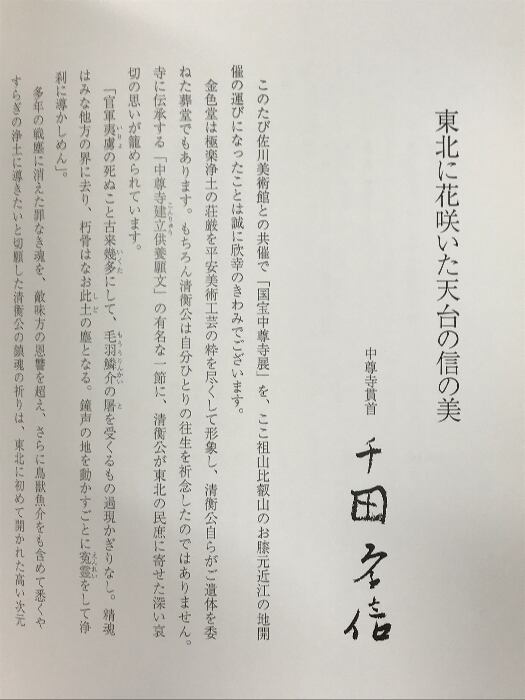 東北に花咲いた天台の信の美
中尊寺貫首
千田孝信
このたび佐川美術館との共催で「国宝中尊寺展」を、ここ祖山比叡山のお膝元近江の地開
催の運びになったことは誠に欣幸のきわみでございます。
金色堂は極楽浄土の荘厳を平安美術工芸の粋を尽くして形象し、清衡公自らがご遺体を委
ねた葬堂でもあります。もちろん清衡公は自分ひとりの往生を祈念したのではありません。
寺に伝承する「中尊寺建立供養願文」の有名な一節に、清衡公が東北の民庶に寄せた深い哀
切の思いが籠められています。
「官軍夷虜の死ぬこと古来幾多にして、毛羽鱗介の屠を受くるもの過現かぎりなし。精魂
はみな他方の界に去り、朽骨はなお此土の塵となる。鐘声の地を動かすごとに冤霊をして浄
刹に導かしめん」。
多年の戦塵に消えた罪なき魂を、敵味方の恩讐を超え、さらに鳥獣魚介をも含めて悉くや
すらぎの浄土に導きたいと切願した清衡公の鎮魂の祈りは、東北に初めて開かれた高い次元